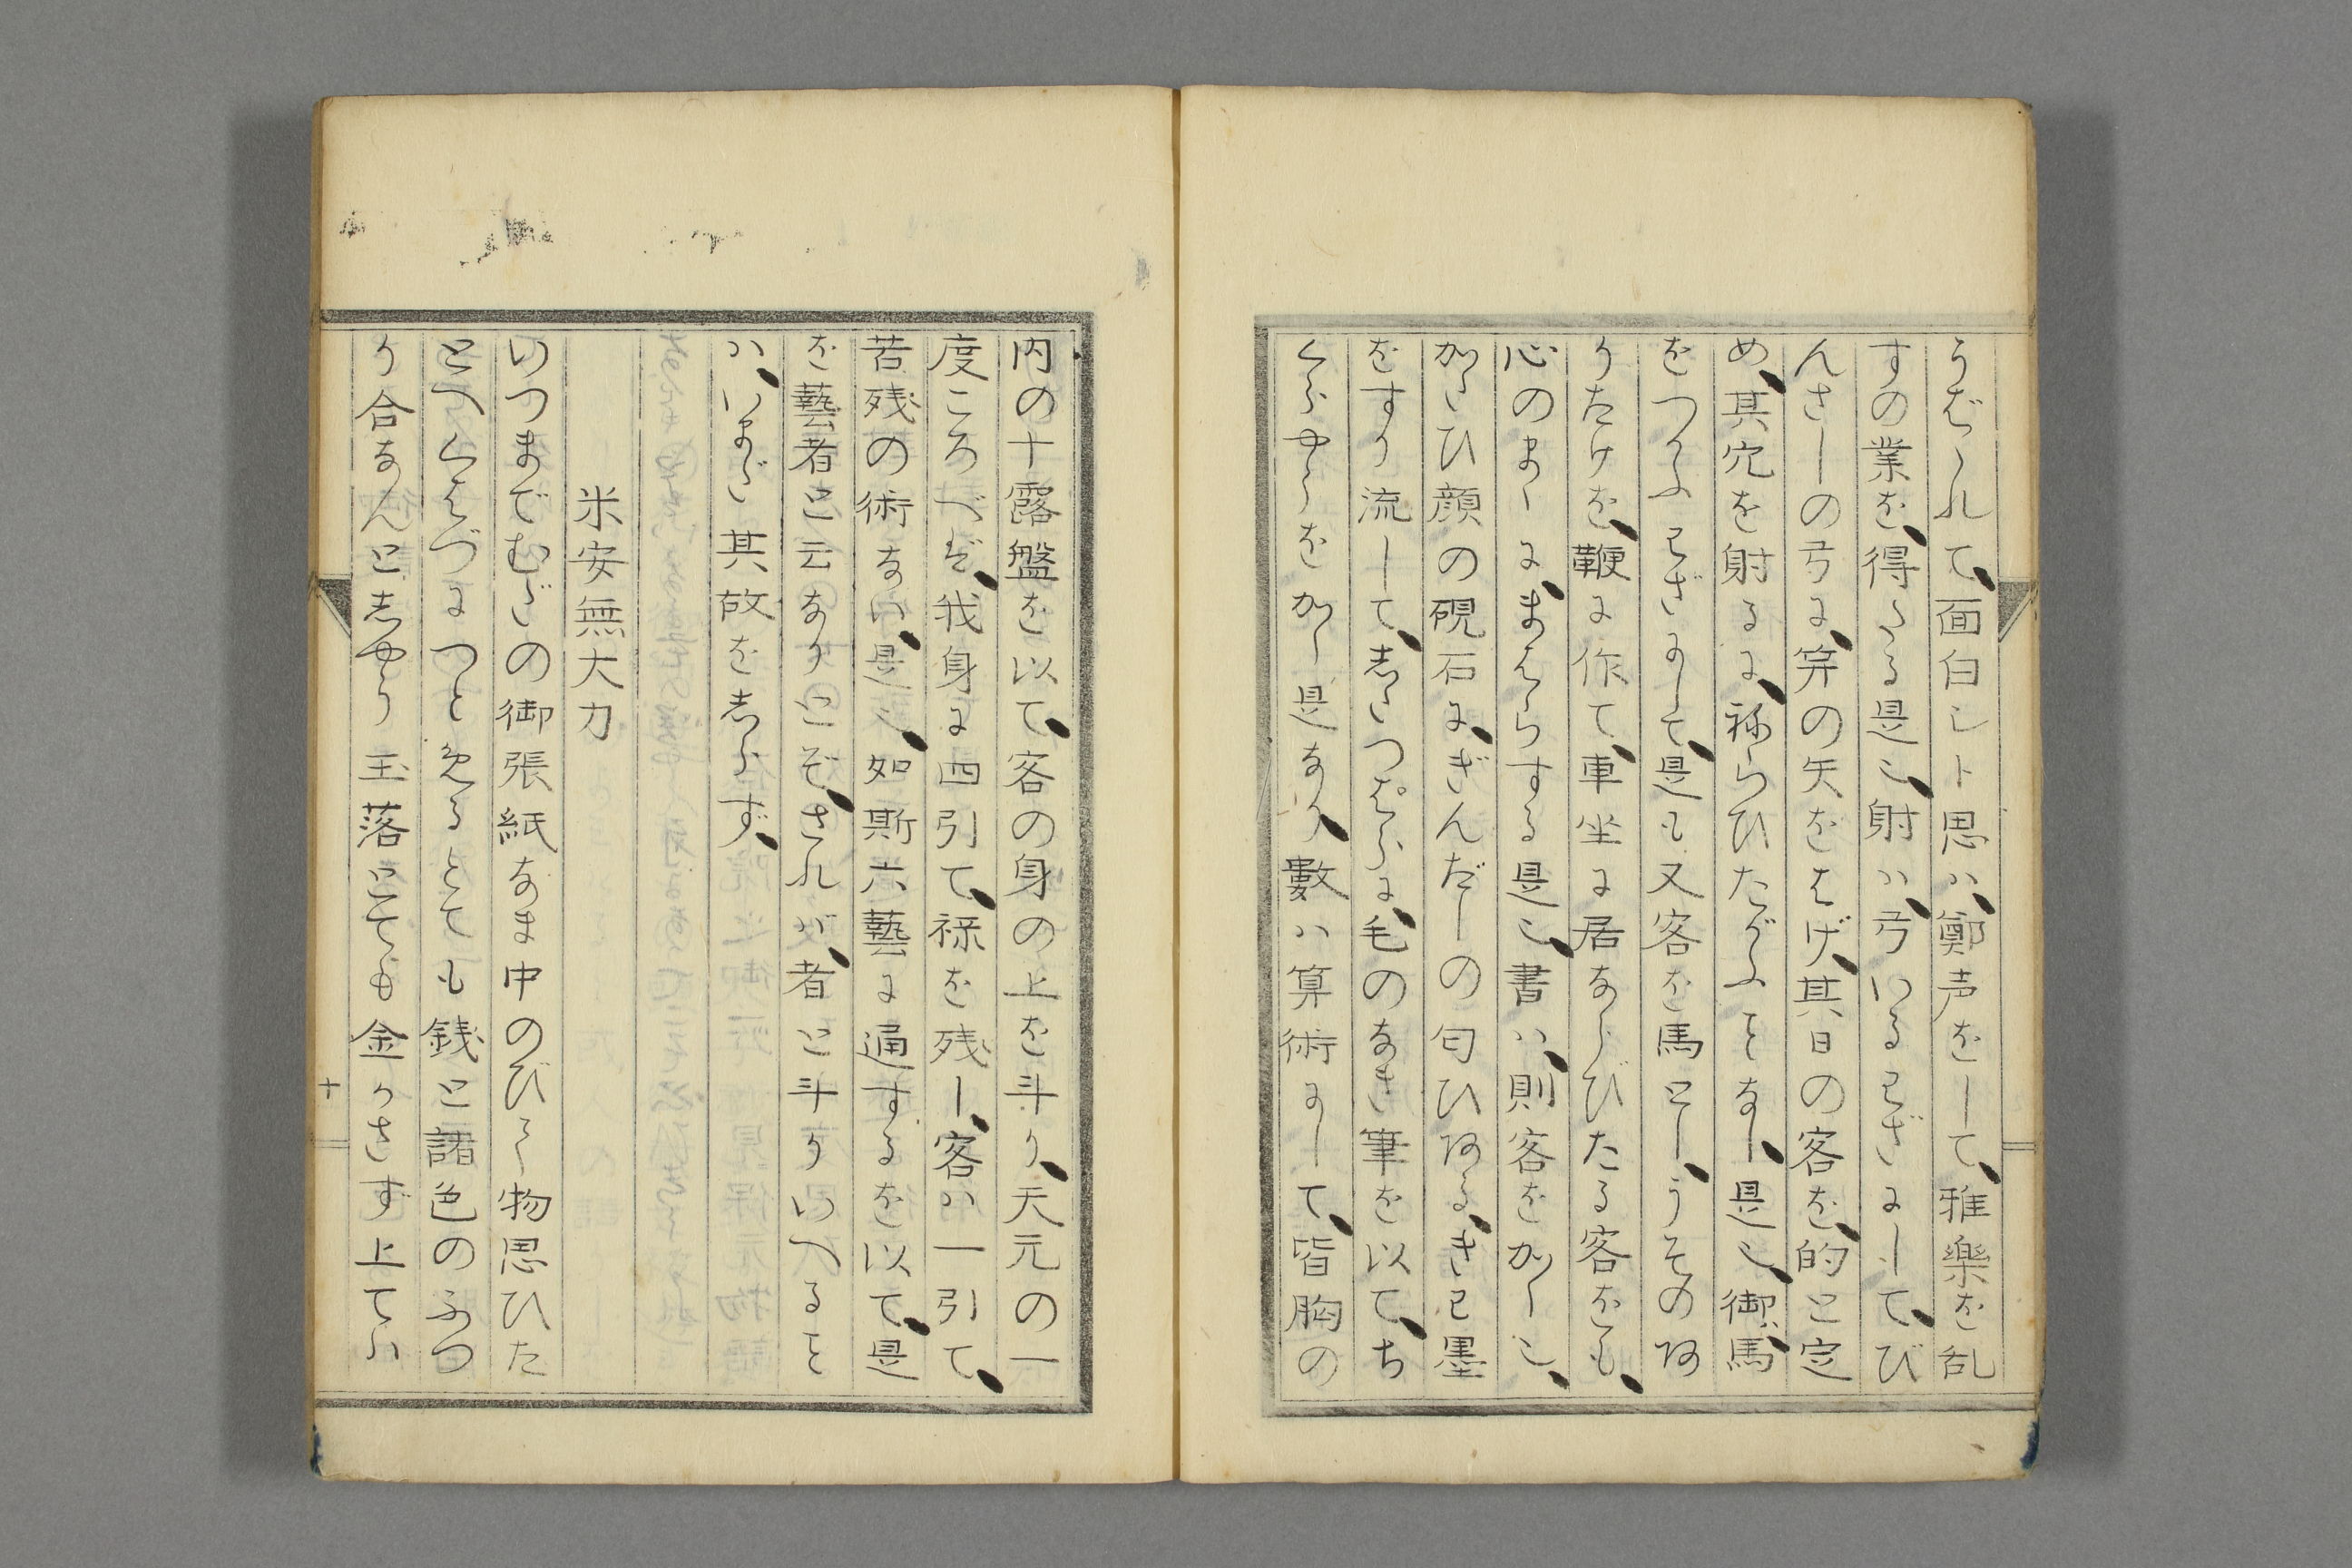 うばゝれて、面白しト思ハ、鄭声をして、雅樂を乱
すの業を、得たる是也、射ハ、弓いるわざにして、び
んさしの弓に、笄の矢をはげ、其日の客を、的と定
め、其穴を射るに、祢らひたがふ事なし、是也、御、馬
をつかふわざにして、是も又客を馬とし、うその阿
りたけを、鞭に作て、車坐に居ならびたる客をも、
心のまゝに、まはらする是也、書ハ、則客をかく也、
かよひ顔の硯石に、ぎんだしの匂ひ阿る、きわ墨
をすり流して、志つぽらに、毛のなき筆を以て、ち
くらやくを かく是なり、數ハ算術にして、皆胸の
内の十露盤を以て、客の身の上を斗り、天元の一
度ころべば、我身に四引て、禄を残し、客ハ一引て、
若残の術ない、是也、如斯六藝に通するを以て、是
を藝者と云なりとぞ、されバ、者と斗りいへる事
ハ、いまだ其故を志らず、
米安無大力
いつまでむだの御張紙なま中のびく物思ひた
とへくはづにつと免るとても銭と諸色のふつ
り合なんと志やう玉落とても金かさず上てハ
十